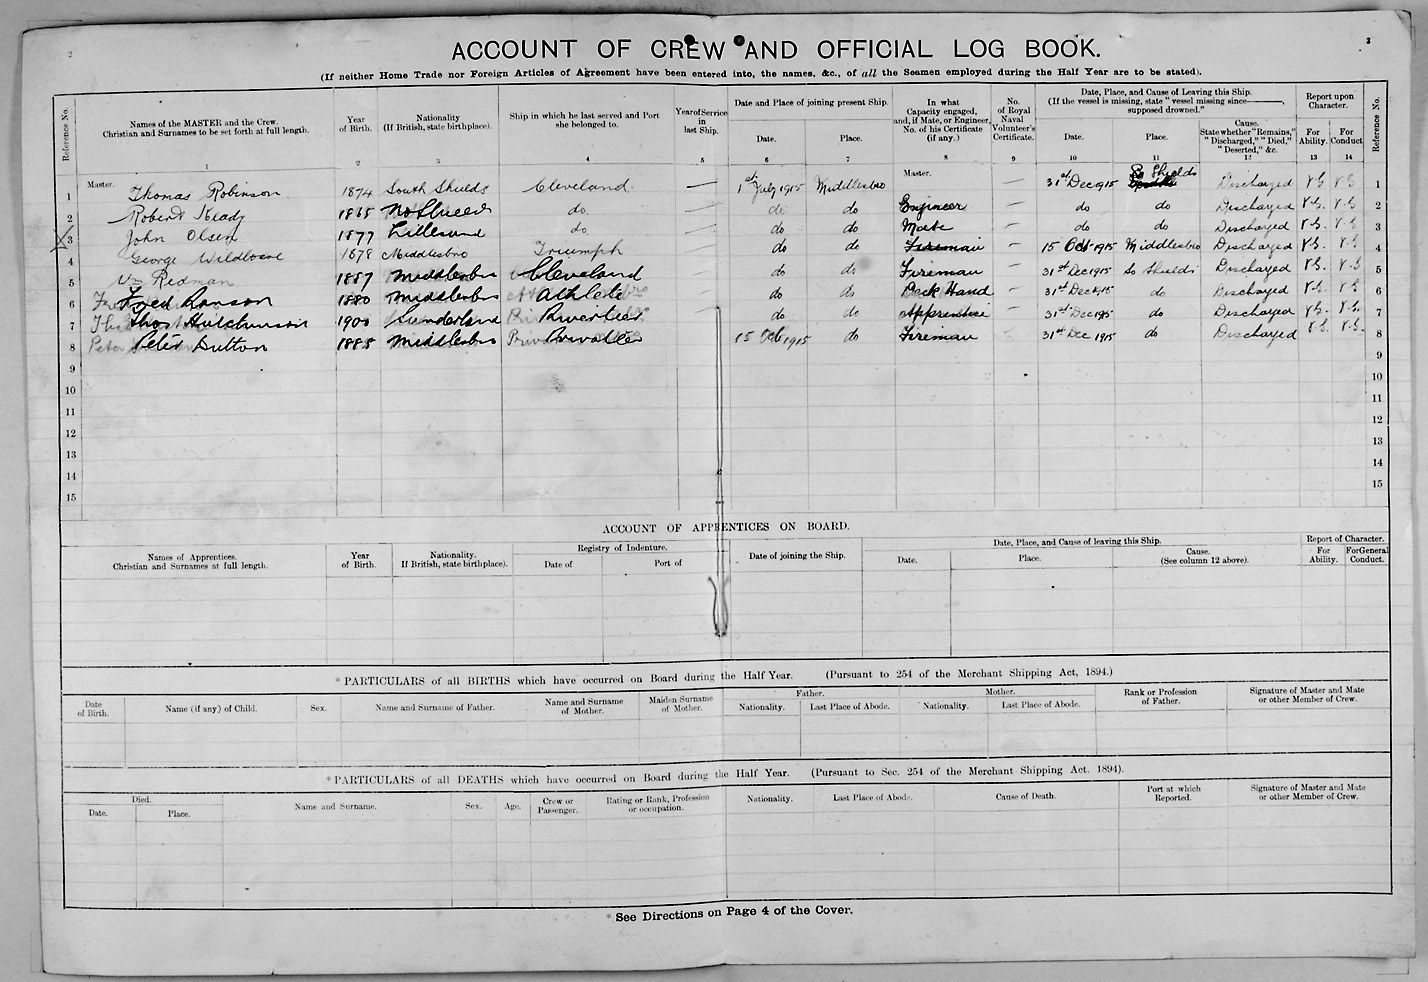 2
3
ACCOUNT OF CREW AND OFFICIAL LOG BOOK.
(If neither Home Trade nor Foreign Articles of Agreement have been entered into, the names, &c., of all the Seamen employed during the Half Year are to be stated).
Reference No. Names of the MASTER and the Crew. Christian and Surnames to be set forth at full length. Year of Birth. Nationality (If British, state birthplace). Ship in which he last served and Port she belonged to. Year of Service in last Ship. Date and Place of joining present Ship. Date. Place. In what Capacity engaged, and, if Mate, or Engineer, No. of his Certificate (if any.) No. of Royal Naval Volunteer's Certificate. Date, Place, and Cause of Leaving this Ship. (If the vessel is missing, state "vessel missing since———, supposed drowned." Date. Place. Cause. State whether "Remains," "Discharged," "Died," "Deserted," &c. Report upon Character. For Ability. For Conduct Reference No.
1 2 3 4 5 6 7 8 9 10 11 12 13 14
1 Master. Thomas Robinson 1874 South Shields Cleveland — 1st July 1915 Middlesbro Master. — 31st Dec 1915 So Shields Discharged V.G V.G 1
2 Robert Keady 1865 do. do do Engineer — do do Discharged V.G. V.G 2
X 3 John Olsen 1877 Lillesund do do do Mate — do do Discharged V.G. V.G 3
4 George Wildbore 1878 Middlesbro Triumph do do Fireman — 15 Oct 1915 Middlesbro Discharged V.G. V.G 4
5 Wm Redman 1887 Middlesbro Cleveland do do Fireman — 31st Dec 1915 So Shields Discharged V.G. V.G 5
6 Fred 1880 Middlesbro Athlete do do Deck Hand 31st Dec 1915 do Discharged V.G. V.G 6
7 Thos Hutchinson 1900 Sunderland do do Apprentice 31st Dec 1915 do Discharged V.G. V.G. 7
8 Peter Dutton 1885 Middlesbro 15 Oct 1915 do Fireman 31st Dec 1915 do Discharged V.G. V.G. 8
9 9
10 10
11 11
12 12
13 13
14 14
15 15
ACCOUNT OF APPRENTICES ON BOARD.
Names of Apprentices. Christian and Surnames at full length. Year of Birth. Nationality. If British, state birthplace). Registry of Indenture. Date of Port of Date of joining the Ship. Date, Place, and Cause of leaving this Ship. Date. Place. Cause. (See column 12 above). Report of Character. For Ability. For General Conduct.
* PARTICULARS of all BIRTHS which have occurred on Board during the Half Year. (Pursuant to 254 of the Merchant Shipping Act, 1894.)
Date of Birth. Name (if any) of Child. Sex. Name and Surname of Father. Name and Surname of Mother. Maiden Surname of Mother. Father. Nationality. Last Place of Abode. Mother. Nationality. Last Place of Abode. Rank or Profession of Father. Signature of Master and Mate or other Member of Crew.
* PARTICULARS of all DEATHS which have occurred on Board during the Half Year. (Pursuant to Sec. 254 of the Merchant Shipping Act. 1894).
Died. Date. Place. Name and Surname. Sex. Age. Crew or Passenger. Rating or Rank, Profession or occupation. Nationality. Last Place of Abode. Cause of Death. Port at which Reported. Signature of Master and Mate or other Member of Crew.
* See Directions on Page 4 of the Cover.